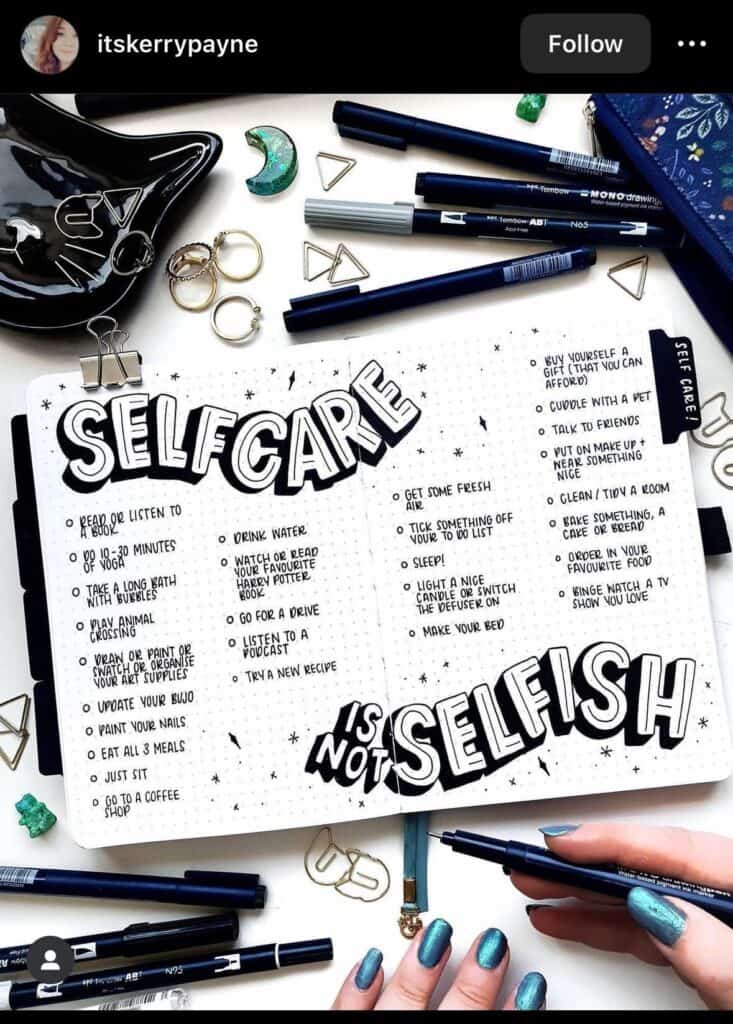 itskerrypayne
Follow
Tombow MONO drawing
Water-based pigment ink marker
Tombow ABT N65
SELF CARE!
SELFCARE
READ OR LISTEN TO
A BOOK
DO 10-30 MINUTES
OF YOGA
TAKE A LONG BATH
WITH BUBBLES
PLAY ANIMAL
CROSSING
DRAW OR PAINT OR
SWATCH OR ORGANISE
YOUR ART SUPPLIES
UPDATE YOUR BUJO
PAINT YOUR NAILS
EAT ALL 3 MEALS
JUST SIT
GO TO A COFFEE
SHOP
DRINK WATER
WATCH OR READ
YOUR FAVOURITE
HARRY POTTER
BOOK
GO FOR A DRIVE
LISTEN TO A
PODCAST
TRY A NEW RECIPE
GET SOME FRESH
AIR
TICK SOMETHING OFF
YOUR TO DO LIST
SLEEP!
LIGHT A NICE
CANDLE OR SWITCH
THE DEFUSER ON
MAKE YOUR BED
BUY YOURSELF A
GIFT (THAT YOU CAN
AFFORD)
CUDDLE WITH A PET
TALK TO FRIENDS
PUT ON MAKE UP +
WEAR SOMETHING
NICE
CLEAN / TIDY A ROOM
BAKE SOMETHING, A
CAKE OR BREAD
ORDER IN YOUR
FAVOURITE FOOD
BINGE WATCH A TV
SHOW YOU LOVE
IS
NOT
SELFISH
Water-based pigment ink marker
ABT N95